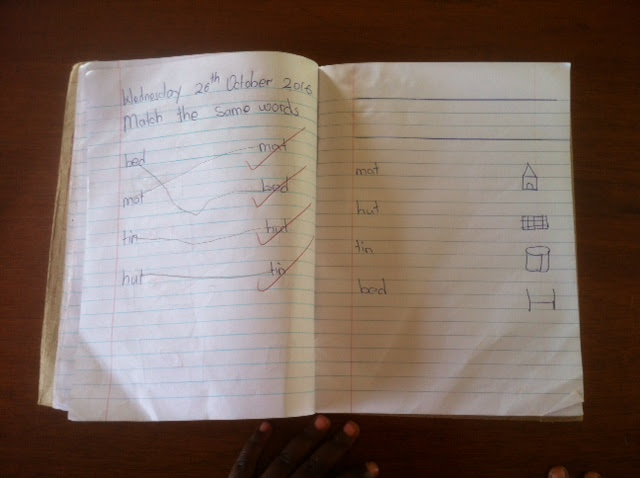 Wednesday 26th October 2016
Match the same words
bed mat
mat bed
tin hut
hut tin
mat
hut
tin
bed